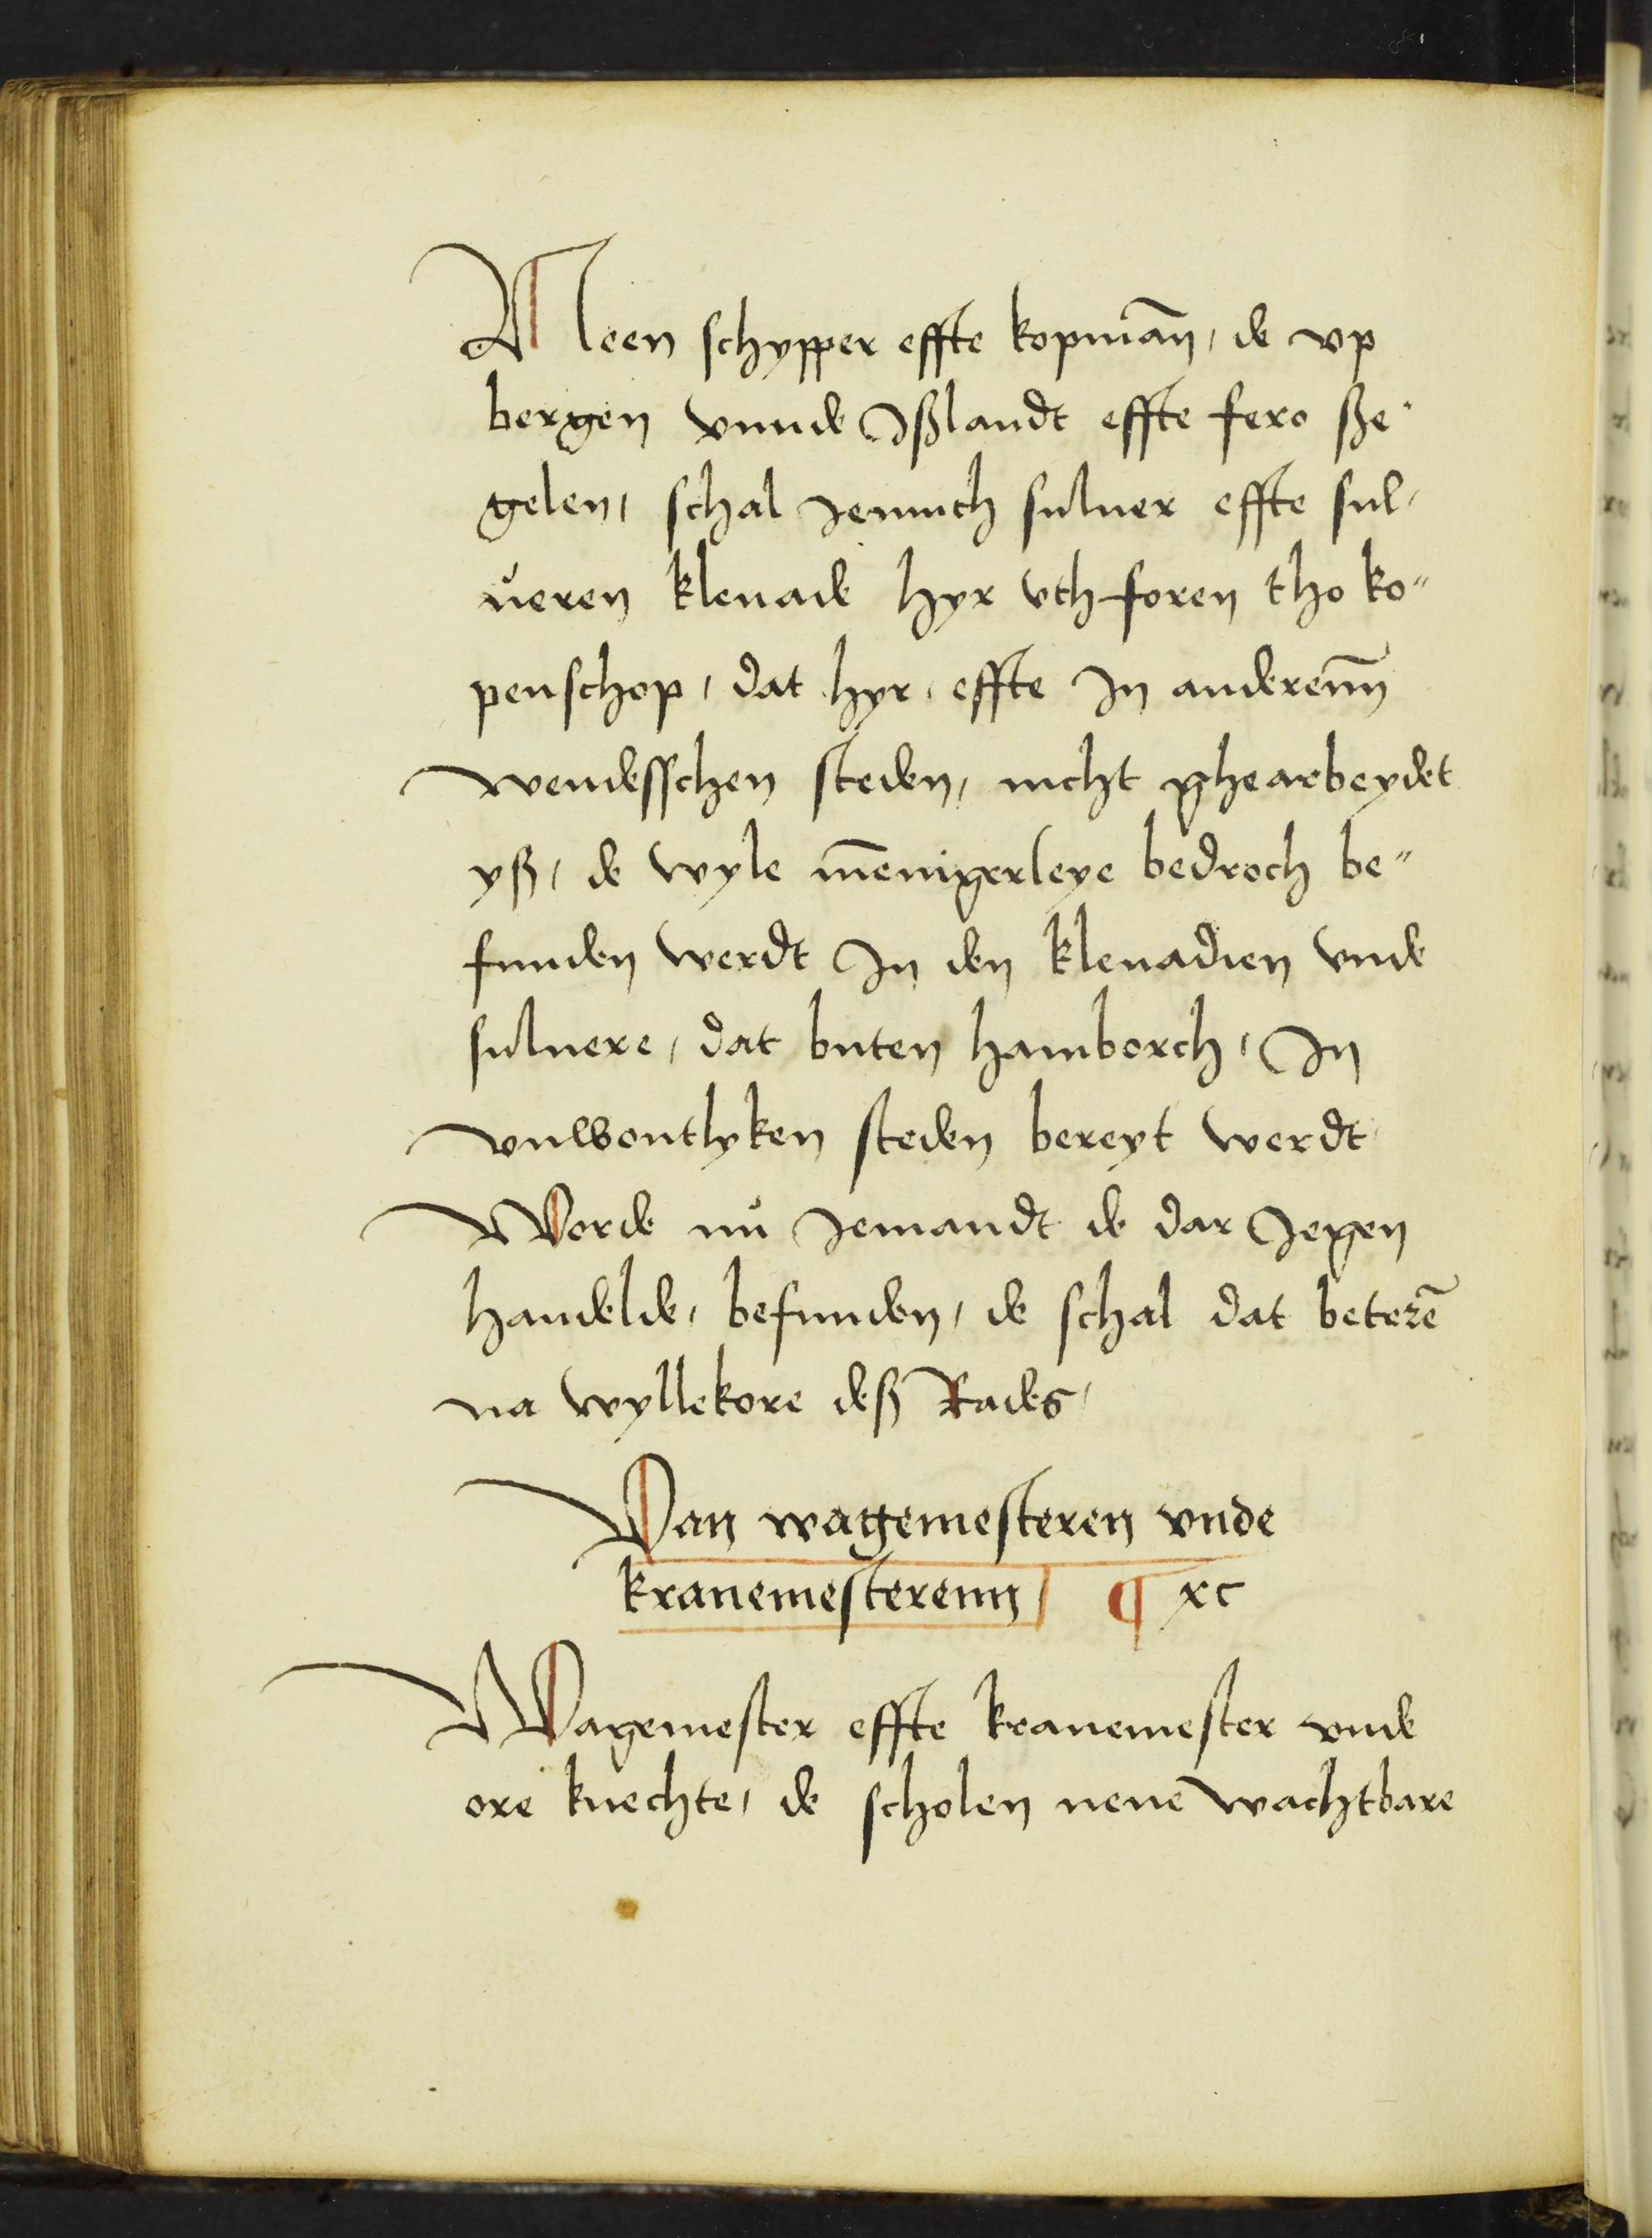 Neen schypper effte kopman̄, de vp
bergen vnnde Jßlandt effte fero ße-
gelen, schal Jennich suluer effte sul,
ueren klenade hyr vth foren tho ko"
penschop, dat hyr, effte Jn anderenn̄
wendesschen steden, nicht ghearbeydet
yß, de wyle m̄enigerleye bedroch be"
funden werdt Jn den klenadien vnde
suluere, dat buten hamborch, Jn
vnwontlyken steden bereyt werdt
Worde nů Jemandt de dar Jegen
handelde, befunden, de schal dat beterē
na wyllekore deß Rades,
Van wagemesteren vnde
kranemesterenn ¶ xc
Wagemester effte kranemester vnde
ore knechte, de scholen nene wachtbare